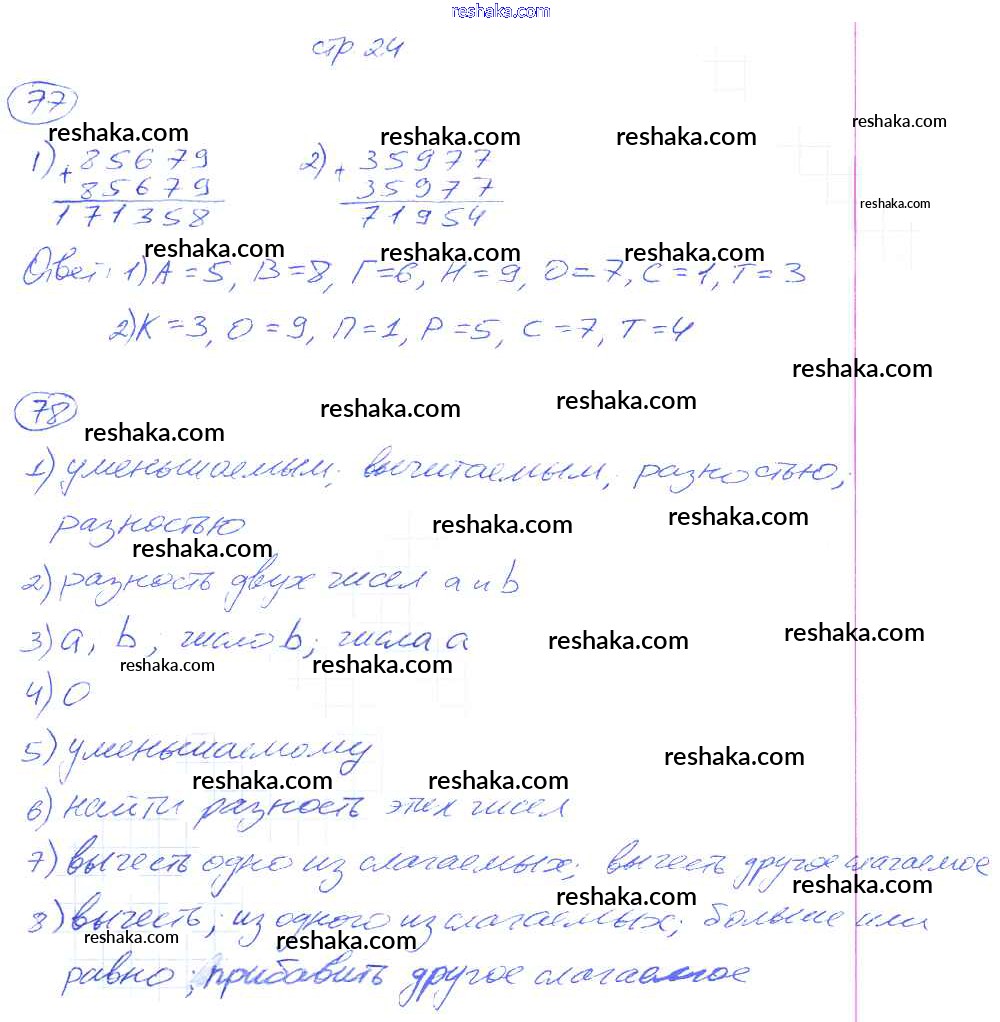 reshaka.com
стр 24
77
reshaka.com reshaka.com reshaka.com reshaka.com
1) + 85679 2) + 35977
85679 35977 reshaka.com
171358 71954
reshaka.com reshaka.com reshaka.com
Ответ: 1) А=5, В=8, Г=6, Н=9, О=7, С=1, Т=3
2) К=3, О=9, П=1, Р=5, С=7, Т=4
reshaka.com
78 reshaka.com reshaka.com
reshaka.com
1) уменьшаемым; вычитаемым; разностью;
разностью reshaka.com reshaka.com
reshaka.com
2) разность двух чисел a и b
3) a, b; число b; числа a reshaka.com reshaka.com
reshaka.com reshaka.com
4) 0
5) уменьшаемому reshaka.com
reshaka.com reshaka.com
6) найти разность этих чисел
7) вычесть одно из слагаемых; вычесть другое слагаемое
reshaka.com reshaka.com
8) вычесть; из одного из слагаемых; больше или
reshaka.com reshaka.com
равно; прибавить другое слагаемое